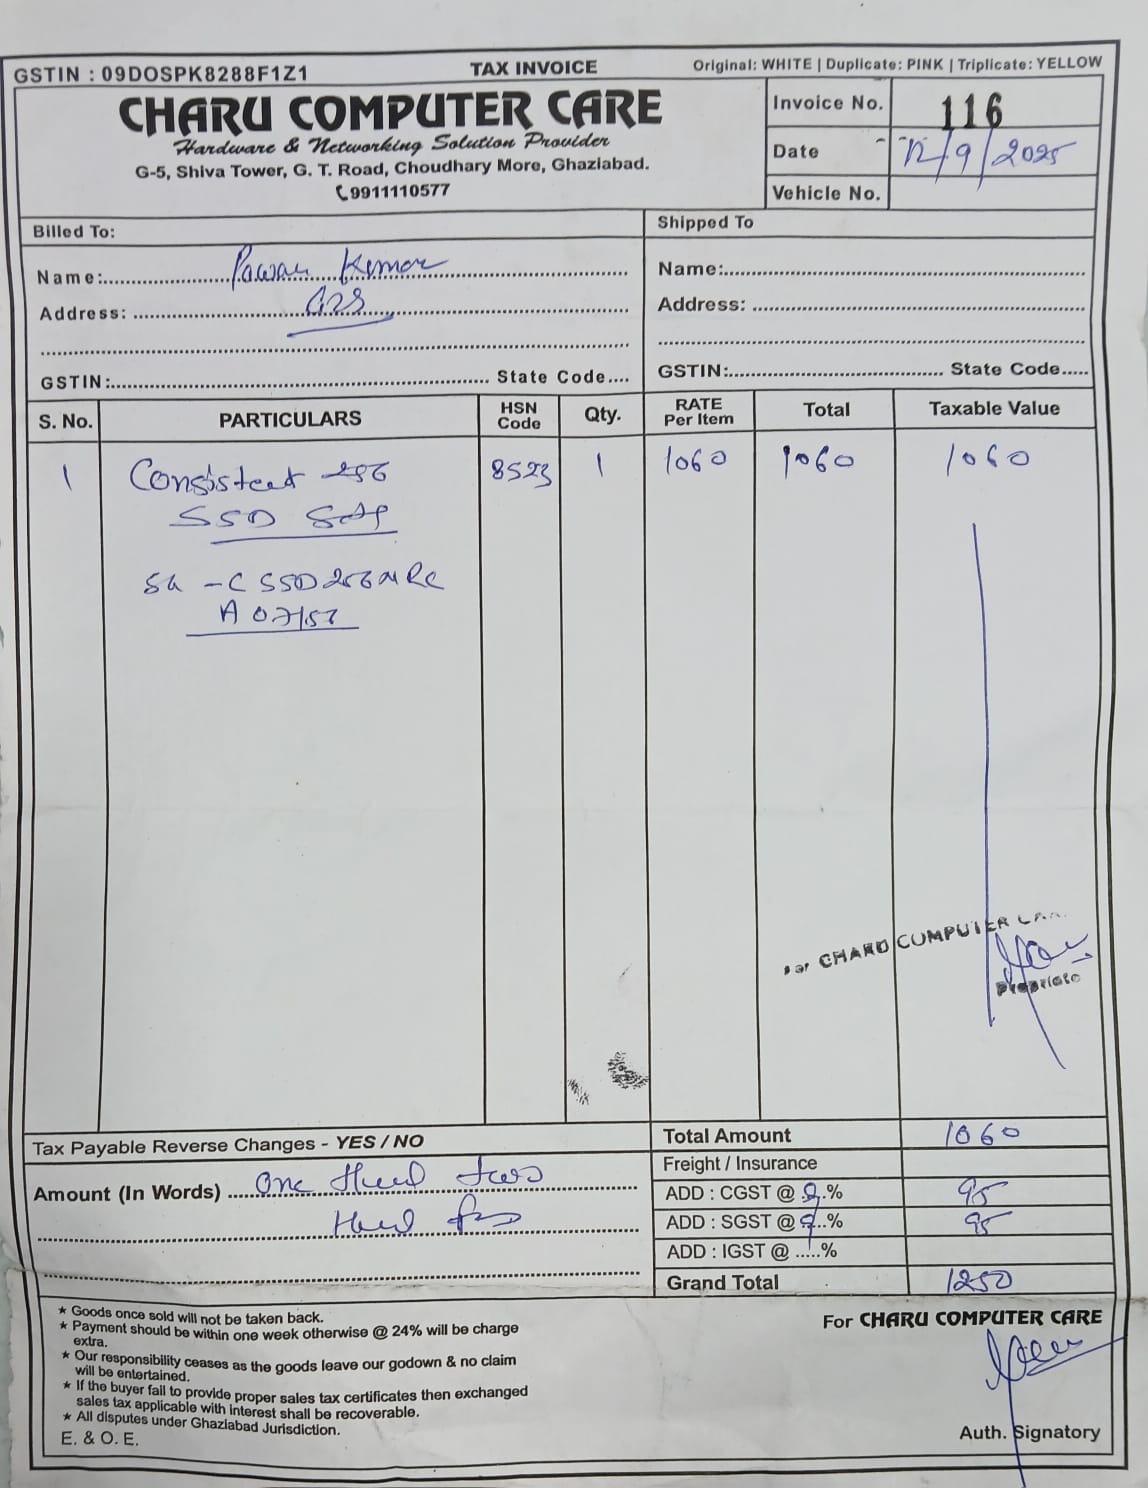 GSTIN : 09DOSPK8288F1Z1
TAX INVOICE
Original: WHITE | Duplicate: PINK | Triplicate: YELLOW
CHARU COMPUTER CARE
Hardware & Networking Solution Provider
G-5, Shiva Tower, G. T. Road, Choudhary More, Ghaziabad.
9911110577
Invoice No. 116
Date 12/9/2025
Vehicle No.
Billed To:
Name: Pawan Kumar
Address:
GSTIN: State Code
Shipped To
Name:
Address:
GSTIN: State Code
S. No. PARTICULARS HSN Code Qty. RATE Per Item Total Taxable Value
1 Consistent 256 8523 1 1060 1060 1060
SSD
CHARU COMPUTER
Tax Payable Reverse Changes - YES / NO
Amount (In Words) One
Total Amount 1060
Freight / Insurance
ADD : CGST @ 9 % 95
ADD : SGST @ 9 % 95
ADD : IGST @ .....%
Grand Total 1250
★ Goods once sold will not be taken back.
★ Payment should be within one week otherwise @ 24% will be charge
extra.
★ Our responsibility ceases as the goods leave our godown & no claim
will be entertained.
★ If the buyer fail to provide proper sales tax certificates then exchanged
sales tax applicable with interest shall be recoverable.
★ All disputes under Ghaziabad Jurisdiction.
E. & O. E.
For CHARU COMPUTER CARE
Auth. Signatory